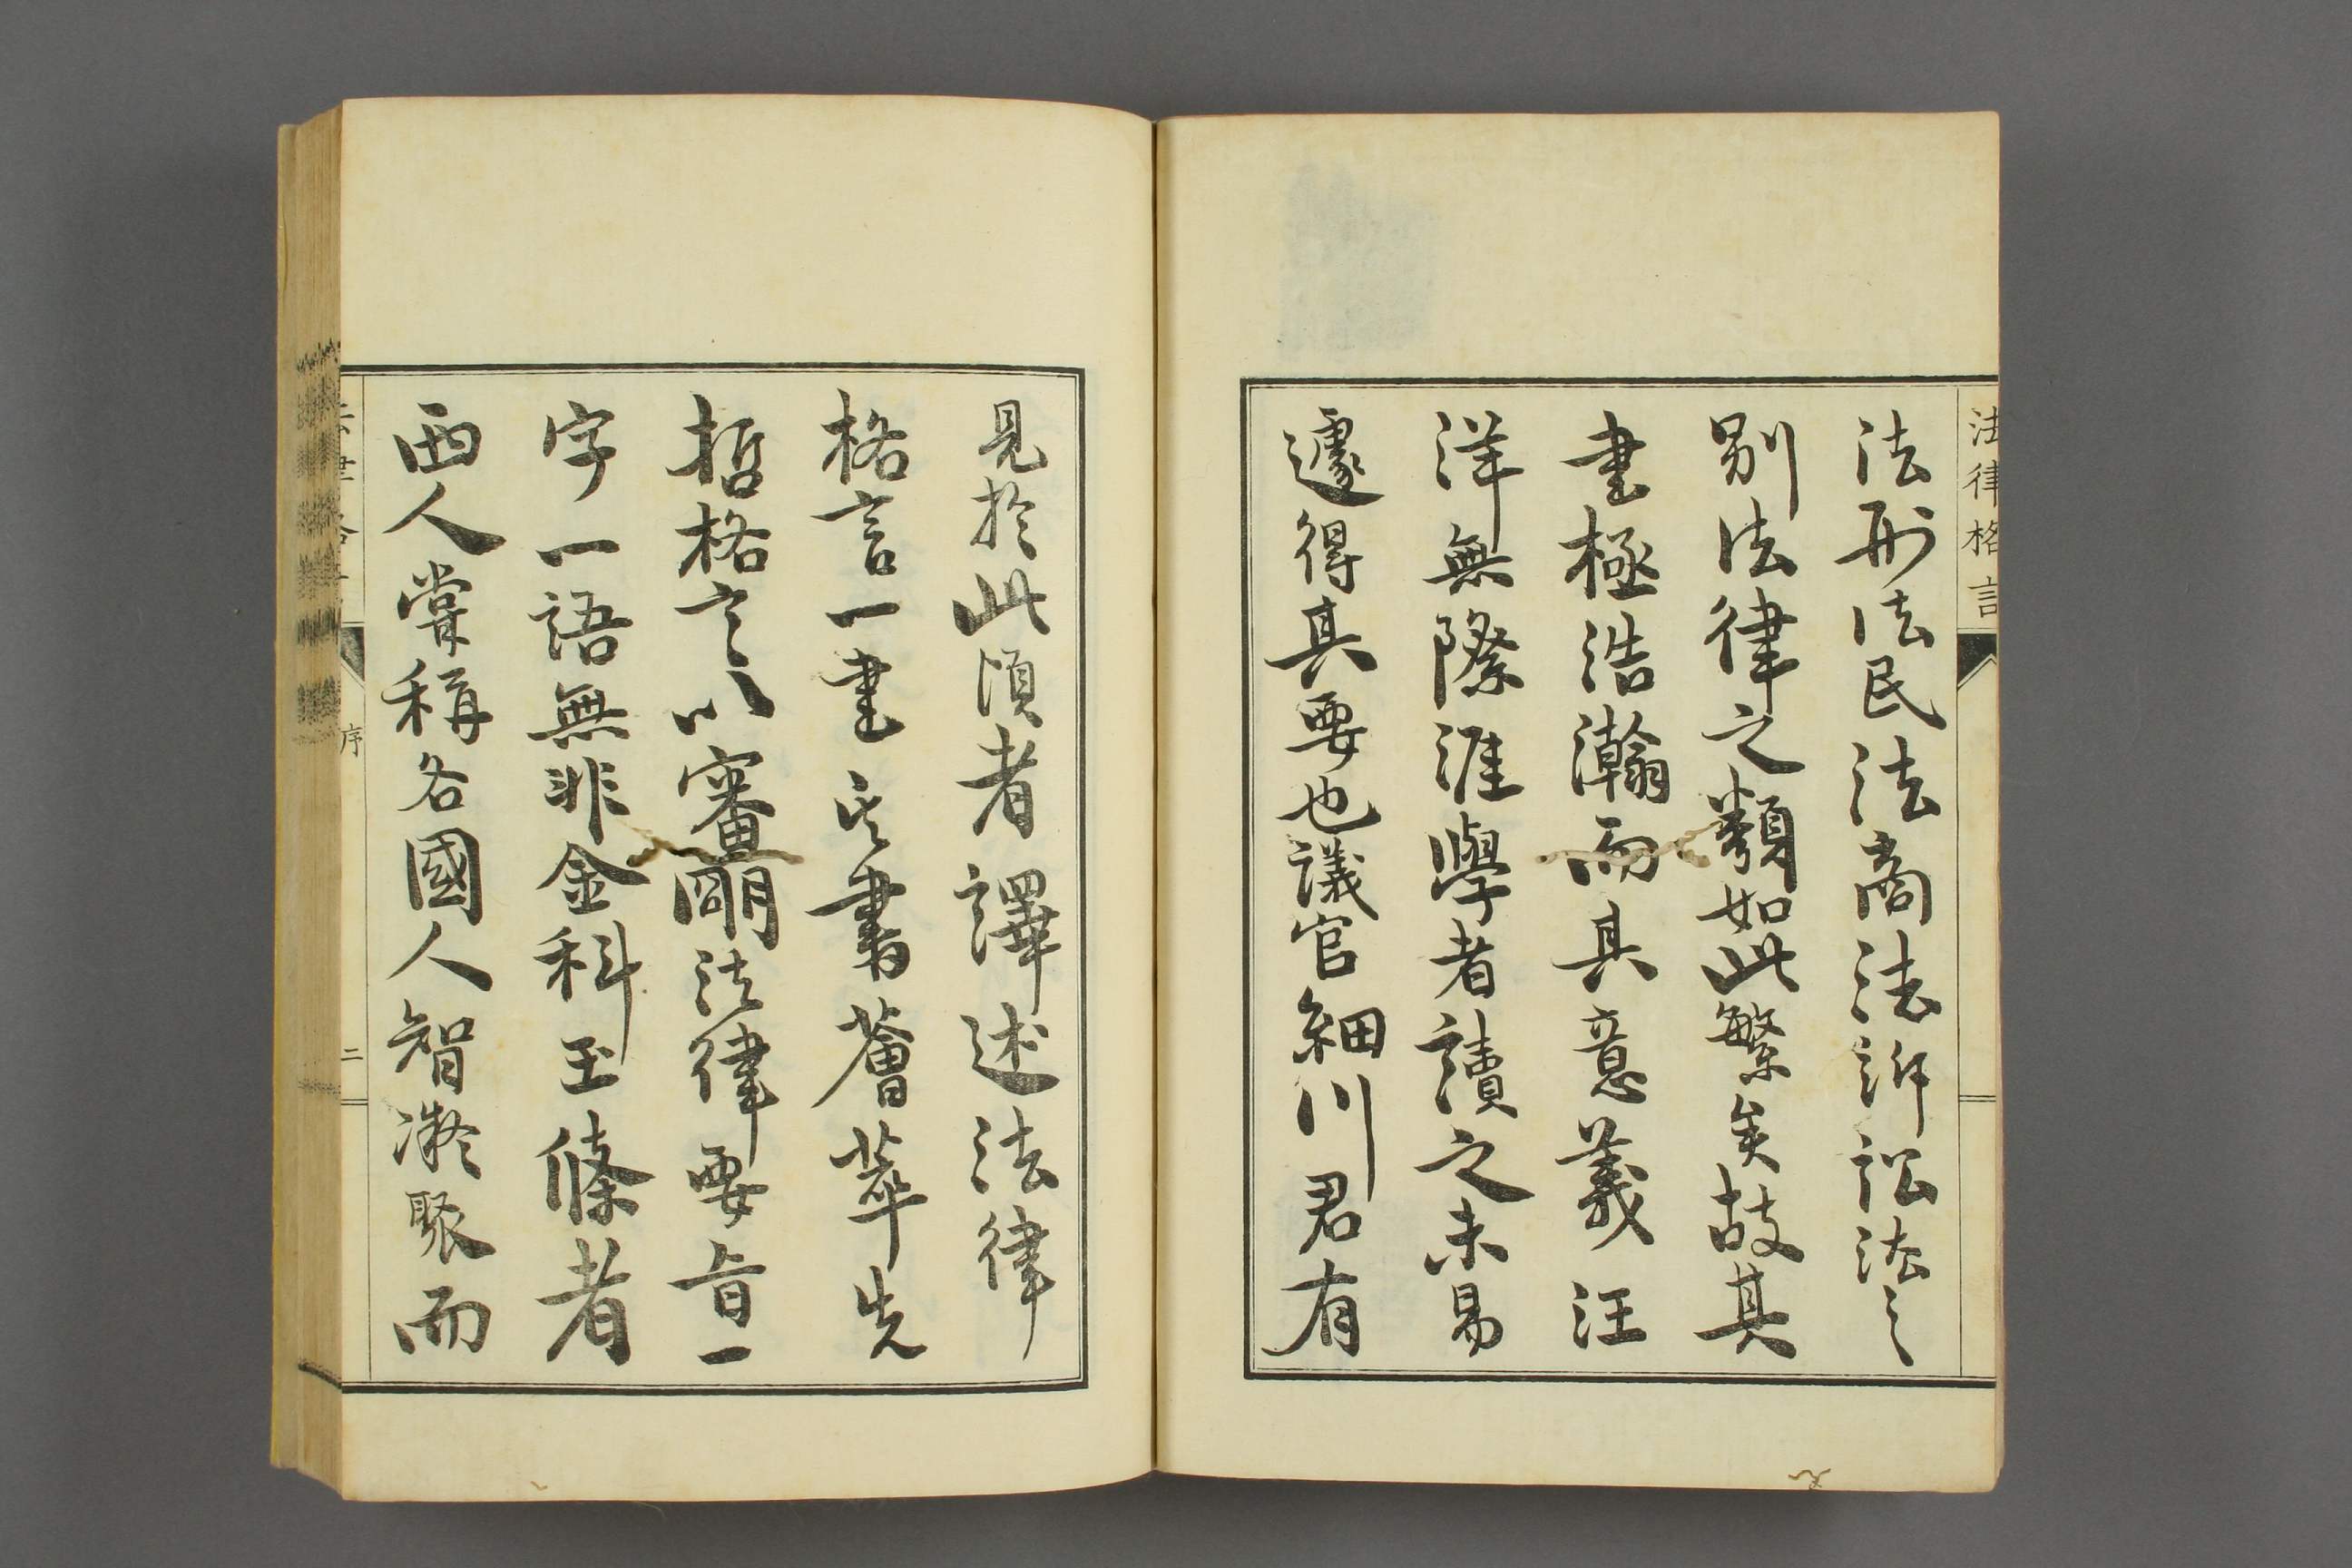 法律格言
法刑法民法商法訴訟法之
別法律之類如此繁矣故其
書極浩瀚而其意義汪
洋無際涯學者讀之未易
遽得其要也議官細川君有
見於此頃者譯述法律
格言一書其書薈萃先
哲格言以審明法律要旨一
字一語無非金科玉條者
西人嘗稱各國人智凝聚而
序
二